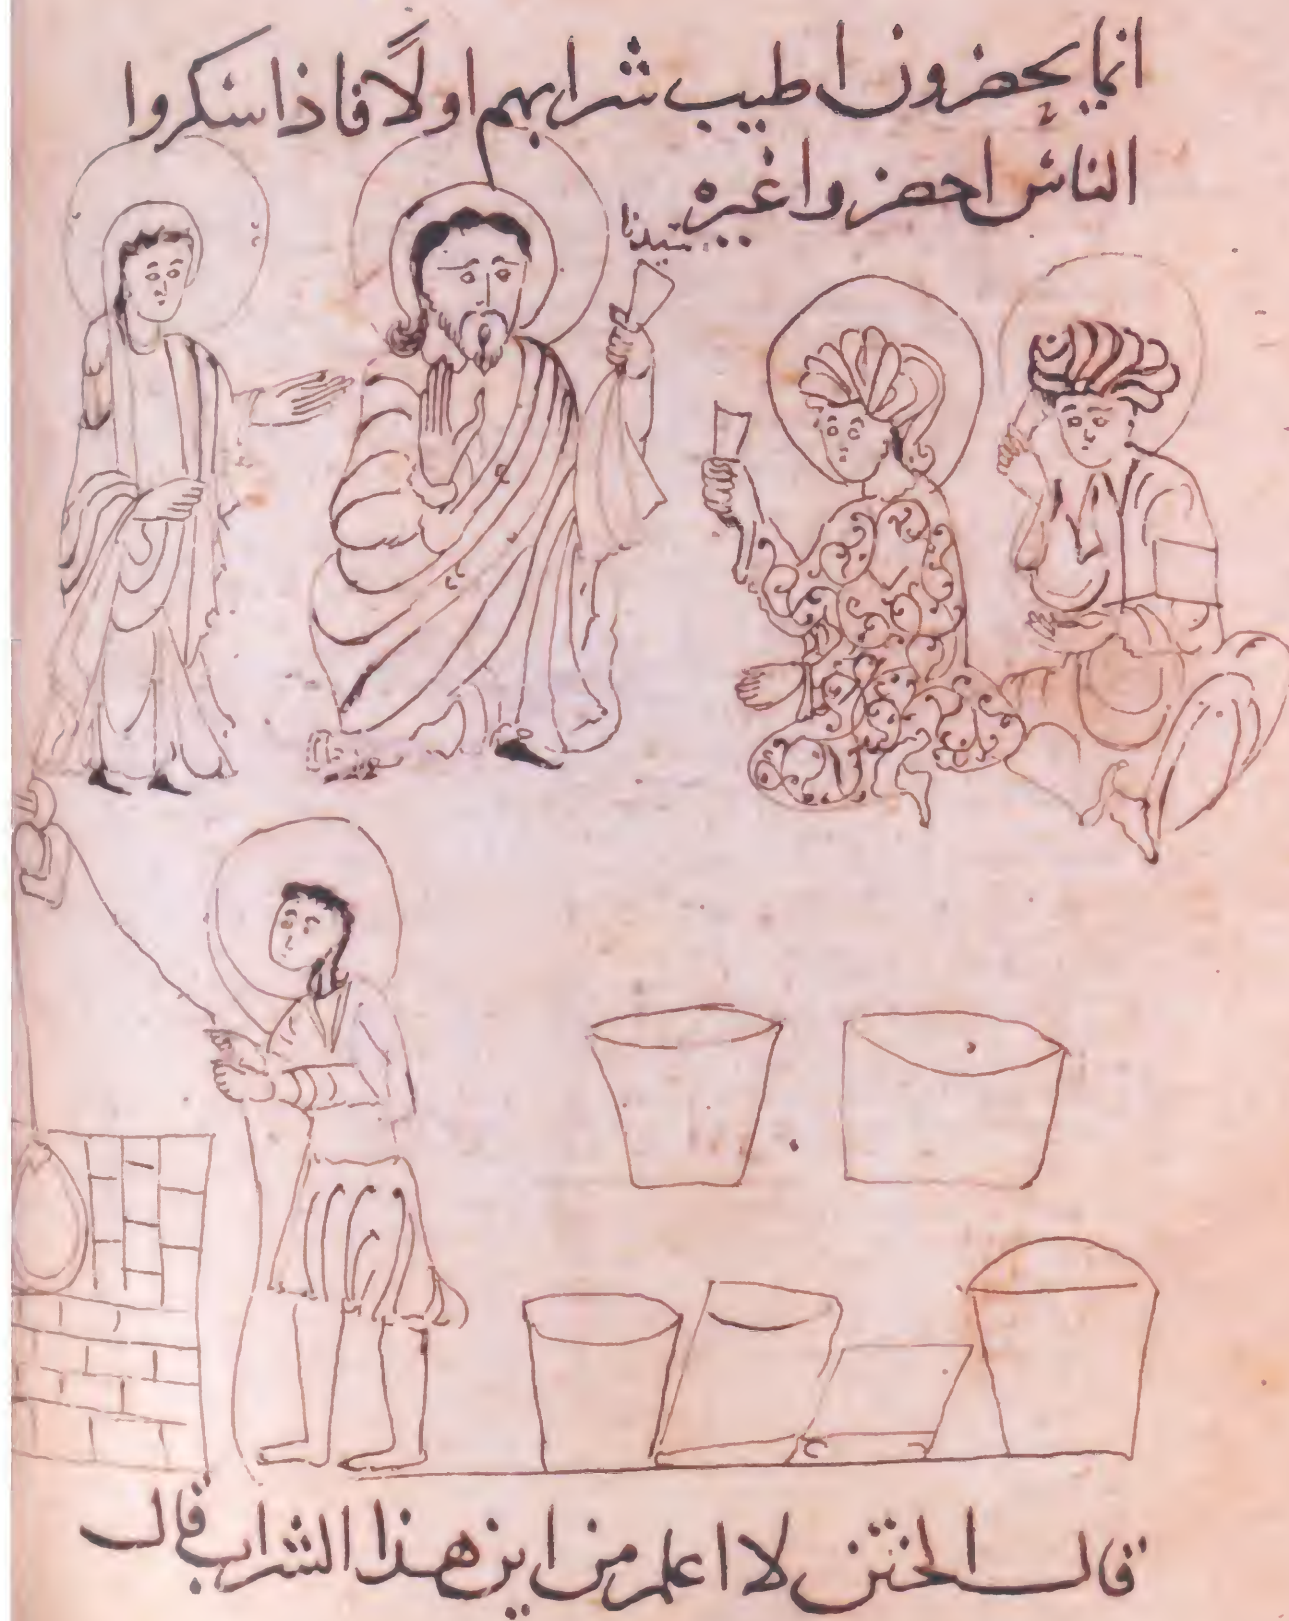 انما يحضرون اطيب شرابهم اولًا فاذا سكروا
الناس احضروا غيره
سيدنا
قال الختن لا اعلم من اين هذا الشراب قال